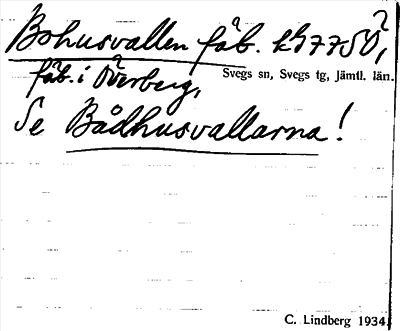 Bohusvallen fäb. k. 7750,
fäb. i Överberg,
Svegs sn, Svegs tg, Jämtl. län.
Se Bådhusvallarna!
C. Lindberg 1934